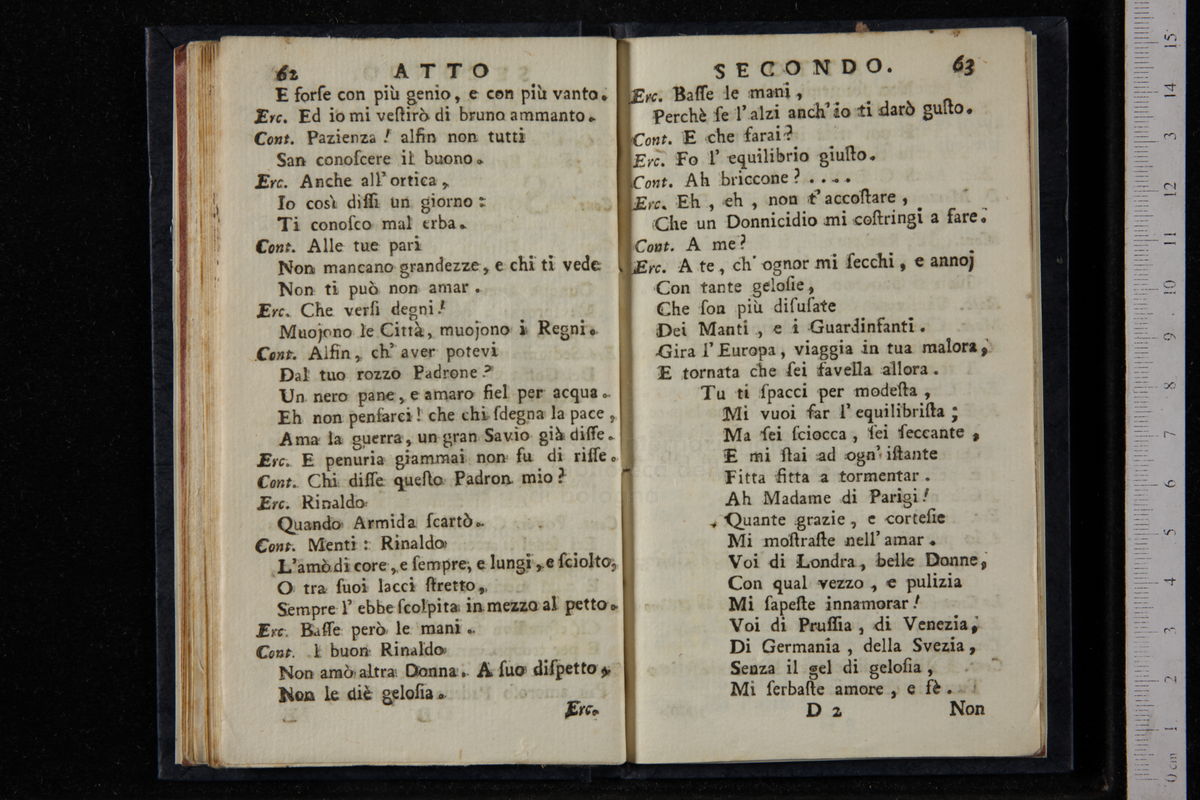 62 ATTO
E forſe con più genio, e con più vanto.
Erc. Ed io mi veſtirò di bruno ammanto.
Cont. Pazienza! alfin non tutti
San conoſcere il buono.
Erc. Anche all' ortica,
Io così diſſi un giorno:
Ti conoſco mal erba.
Cont. Alle tue pari
Non mancano grandezze, e chi ti vede
Non ti può non amar.
Erc. Che verſi degni!
Muojono le Città, muojono i Regni.
Cont. Alfin, ch' aver potevi
Dal tuo rozzo Padrone?
Un nero pane, e amaro fiel per acqua.
Eh non penſarci! che chi ſdegna la pace,
Ama la guerra, un gran Savio già diſſe.
Erc. E penuria giammai non fu di riſſe.
Cont. Chi diſſe queſto Padron mio?
Erc. Rinaldo
Quando Armida ſcartò.
Cont. Menti: Rinaldo
L'amò di core, e ſempre, e lungi, e ſciolto,
O tra ſuoi lacci ſtretto,
Sempre l' ebbe ſcolpita in mezzo al petto.
Erc. Baſſe però le mani.
Cont. l buon Rinaldo
Non amò altra Donna. A ſuo diſpetto,
Non le diè geloſia.
Erc.
SECONDO. 63
Erc. Baſſe le mani,
Perchè ſe l'alzi anch' io ti darò guſto.
Cont. E che farai?
Erc. Fo l' equilibrio giuſto.
Cont. Ah briccone? ....
Erc. Eh, eh, non t' accoſtare,
Che un Donnicidio mi coſtringi a fare.
Cont. A me?
Erc. A te, ch' ognor mi ſecchi, e annoj
Con tante geloſie,
Che ſon più diſuſate
Dei Manti, e i Guardinfanti.
Gira l' Europa, viaggia in tua malora,
E tornata che ſei favella allora.
Tu ti ſpacci per modeſta,
Mi vuoi far l' equilibriſta;
Ma ſei ſciocca, ſei ſeccante,
E mi ſtai ad ogn' iſtante
Fitta fitta a tormentar.
Ah Madame di Parigi!
Quante grazie, e corteſie
Mi moſtraſte nell' amar.
Voi di Londra, belle Donne,
Con qual vezzo, e pulizia
Mi ſapeſte innamorar!
Voi di Pruſſia, di Venezia,
Di Germania, della Svezia,
Senza il gel di geloſia,
Mi ſerbaſte amore, e fè.
D 2 Non
0 cm 1 2 3 4 5 6 7 8 9 10 11 12 13 14 15